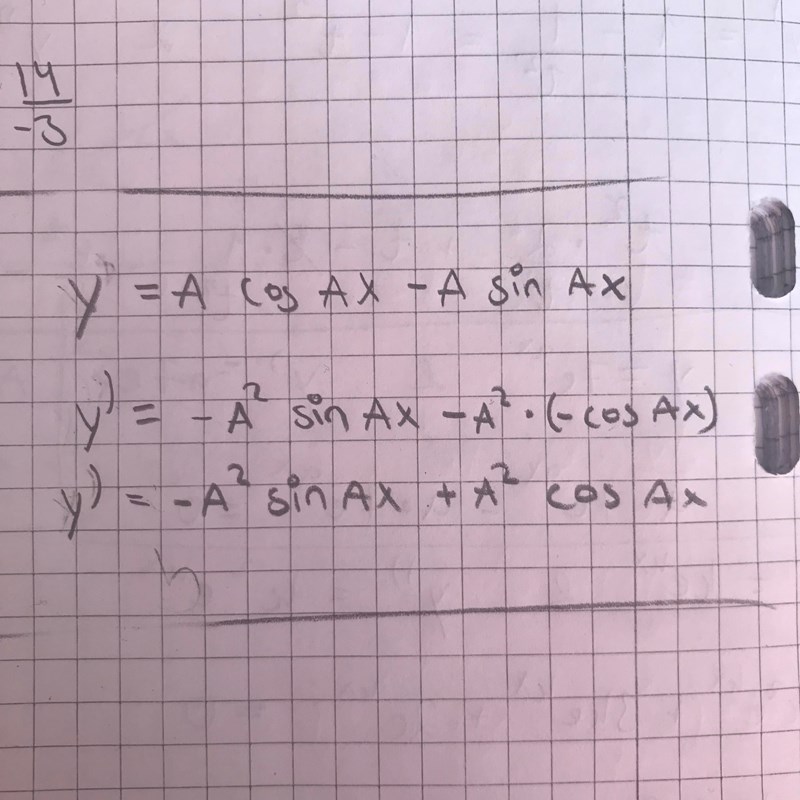 14
-3
y = A cos Ax - A sin Ax
y' = -A² sin Ax - A² · (-cos Ax)
y' = -A² sin Ax + A² cos Ax